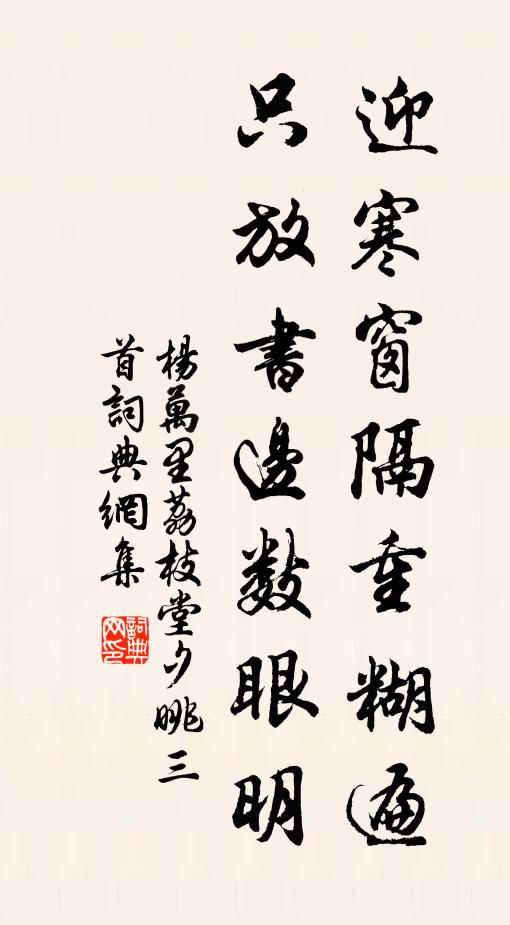 迎寒窗隔重糊遍
只放書邊數眼明
楊萬里荔枝堂夕眺三
首詞典網集
詞典
网印